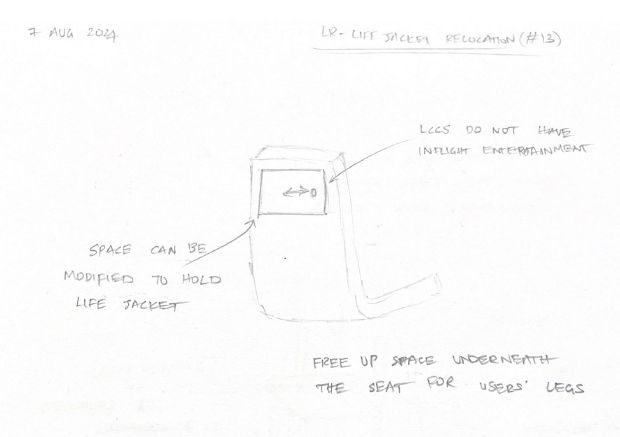 7 AUG 2024
LR- LIFE JACKET RELOCATION (#13)
LCCS DO NOT HAVE
INFLIGHT ENTERTAINMENT
SPACE CAN BE
MODIFIED TO HOLD
LIFE JACKET
FREE UP SPACE UNDERNEATH
THE SEAT FOR USERS' LEGS